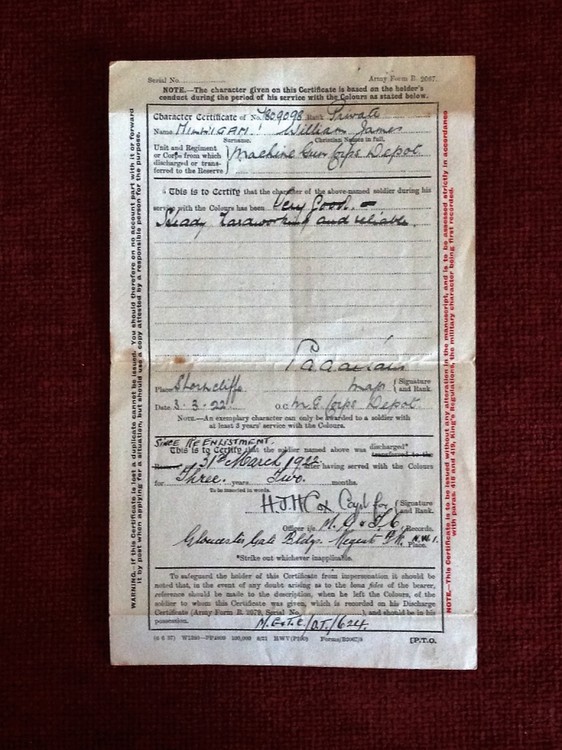 Serial No. Army Form B. 2067.
NOTE.—The character given on this Certificate is based on the holder's
conduct during the period of his service with the Colours as stated below.
Character Certificate of No. 7809098 Rank Private
Name William James
Surname. Christian Names in full.
Unit and Regiment
or Corps from which
discharged or trans-
ferred to the Reserve
Machine Gun Corps Depot
This is to Certify that the character of the above-named soldier during his
service with the Colours has been Very Good. —
Steady, hardworking and reliable.
Signature
and Rank.
Place Shorncliffe Major
Date 3-3-22 O.C. M.G. Corps Depot.
NOTE.—An exemplary character can only be awarded to a soldier with
at least 3 years' service with the Colours.
SINCE RE ENLISTMENT.
This is to Certify that the soldier named above was discharged*
transferred to the
31st March 1922 after having served with the Colours
for Three. years Two. months.
To be inserted in words.
H.J.H Cox Capt for Signature
and Rank.
Officer i/c M.G. Records.
Gloucester Gate Bldgs. Regent Pk. N.W.1. Place.
*Strike out whichever inapplicable.
To safeguard the holder of this Certificate from impersonation it should be
noted that, in the event of any doubt arising as to the bona fides of the bearer,
reference should be made to the description, when he left the Colours, of
the soldier to whom this Certificate was given, which is recorded on his Discharge
Certificate (Army Form B. 2079, Serial No. ), and should be in his
possession.
[P.T.O.
WARNING.—If this Certificate is lost a duplicate cannot be issued. You should therefore on no account part with it or forward
it by post when applying for a situation, but should use a copy attested by a responsible person for the purpose.
NOTE.—This Certificate is to be issued without any alteration in the manuscript, and is to be assessed strictly in accordance
with paras. 418 and 419, King's Regulations, the military character being first recorded.